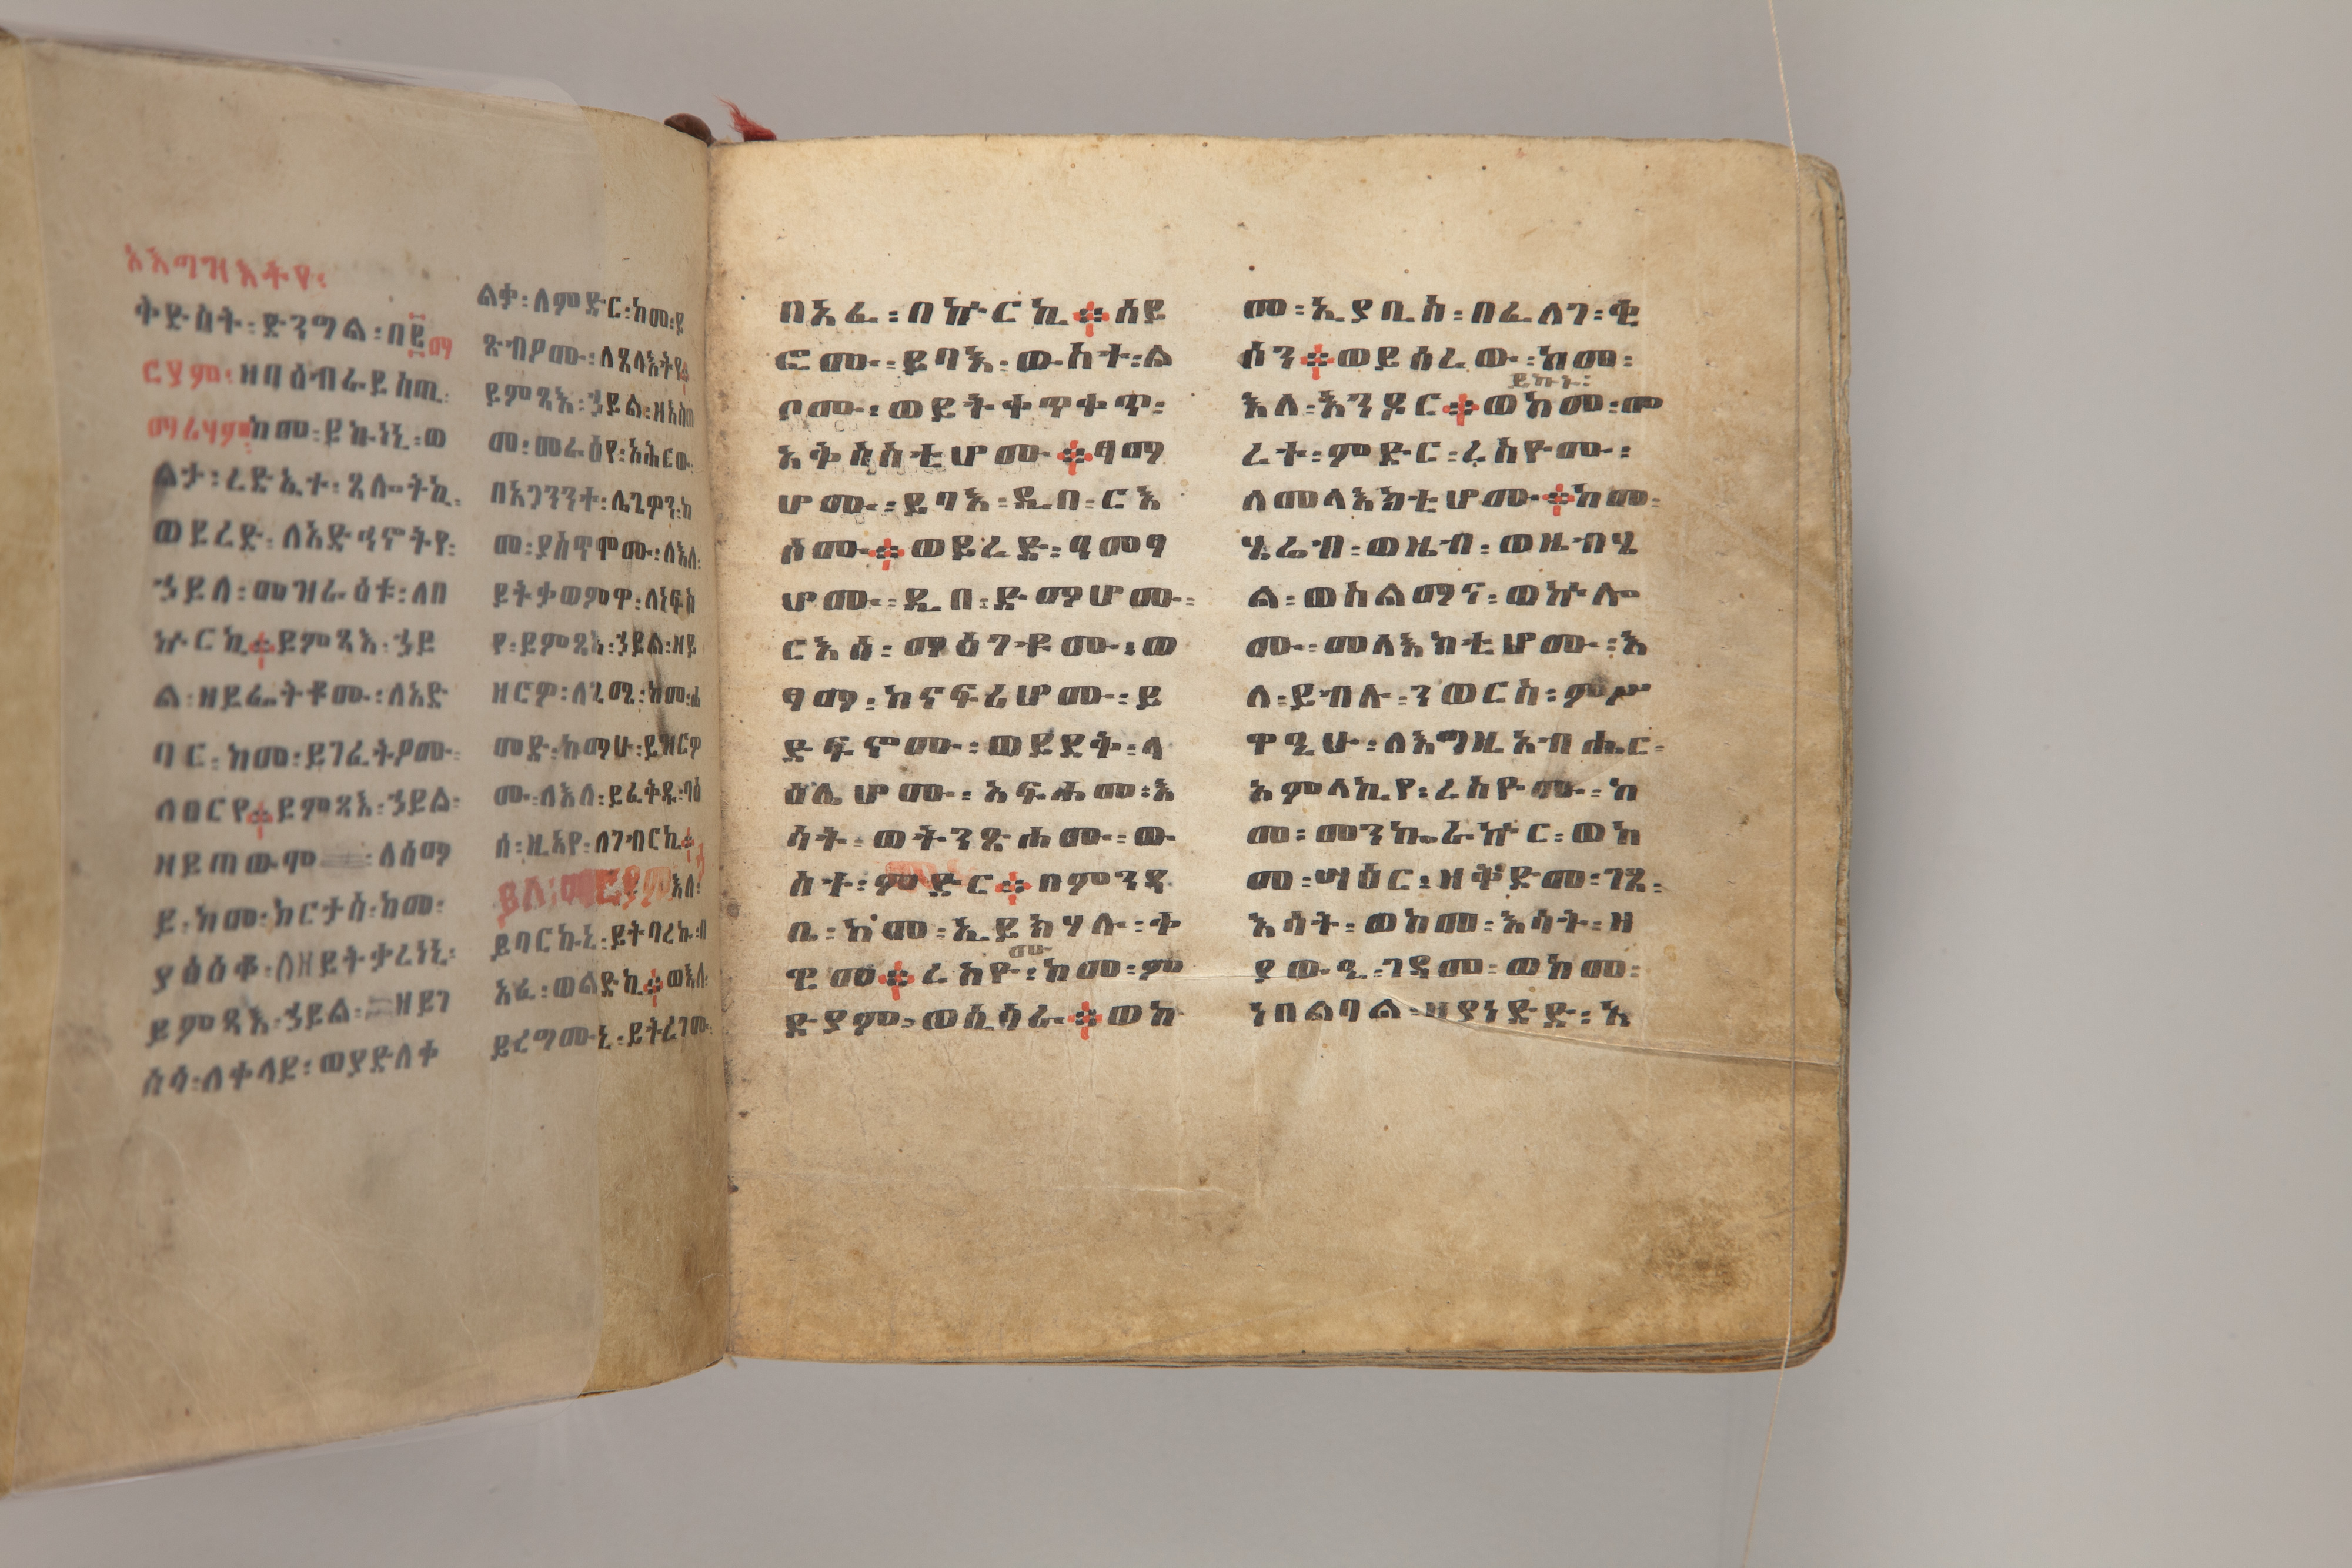 አእግዝእትየ፡
ቅድስት፡ድንግል፡በ፪ማ
ርያም፡ዘባዕብራይስጢ፡
ማሪሃም፡ከመ፡ይኩነኒ፡ወ
ይረድ፡ለአድኅኖትየ፡
ኃይለ፡መዝራዕቱ፡ለበ
ኵርኪ፨ይምጻእ፡ኃይ
ል፡ዘይፌትቶሙ፡ለአድ
ባር፡ከመ፡ይገፈትዖሙ፡
ለፀርየ፨ይምጻእ፡ኃይል፡
ይ፡ከመ፡ክርታስ፡ከመ፡
ይምጻእ፡ኃይል፡ዘይገ
ሥሳ፡ለቀላይ፡ወያድለቀ
ልቃ፡ለምድር፡ከመ፡ያ
ጽብዖሙ፡ለጸላእትየ፨
ይምጻእ፡ኃይል፡ዘአስጠ
መ፡መራዕየ፡አሕርው
በአጋንንት፡ሌጌዎን፡ከ
መ፡ያስጥሞሙ፡ለእለ፡
ይትቃወምዋ፡ለነፍስ
የ፡ይምጻእ፡ኃይል፡ዘይ
ዘርዎ፡ለጊሜ፡ከመ፡ሐ
መድ፡ከማሁ፡ይዝርዎ
ሙ፡ለእለ፡ይፈቅዱ፡ባዕ
ሰ፡ዚአየ፡ለገብርኪ፨
ይባርኩኒ፡ይትባረኩ፡በ
አፈ፡ወልድኪ፨ወእለ፡
ይረግሙኒ፡ይትረገሙ፡
በአፈ፡በኵርኪ፨ሰይ
ፎሙ፡ይባእ፡ውስተ፡ል
ቦሙ፡ወይትቀጥቀጥ፡
አቅስስቲሆሙ፨ፃማ
ሆሙ፡ይባእ፡ዲበ፡ርእ
ሶሙ፨ወይረድ፡ዓመፃ
ሆሙ፡ዲበ፡ድማሆሙ፡
ርእሰ፡ማዕገቶሙ፡ወ
ፃማ፡ከናፍሪሆሙ፡ይ
ድፍኖሙ፡ወይደቅ፡ላ
ዕሌሆሙ፡አፍሐመ፡እ
ሳት፡ወትንጽሖሙ፡ው
ስተ፡ምድር፨በምንዳ
ቤ፡ከመ፡ኢይክሃሉ፡ቀ
ዊመ፨ረስዮሙ፡ከመ፡ም
ድያም፡ወሲሳራ፨ወከ
መ፡ኢያቢስ፡በፈለገ፡ቂ
ሶን፨ወይሰረው፡ከመ፡
ይኩኑ፡
እለ፡እንዶር፨ወከመ፡መ
ሬተ፡ምድር፡ረስዮሙ፡
ለመላእክቲሆሙ፨ከመ፡
ሄሬብ፡ወዜብ፡ወዜብሄ
ል፡ወስልማና፡ወኵሎ
ሙ፡መላእክቲሆሙ፡እ
ለ፡ይብሉ፡ንወርስ፡ምሥ
ዋዒሁ፡ለእግዚአብሔር፡
አምላኪየ፡ረስዮሙ፡ከ
መ፡መንኰራኵር፡ወከ
መ፡ሣዕር፡ዘቅድመ፡ገጸ፡
እሳት፡ወከመ፡እሳት፡ዘ
ያውዒ፡ገዳመ፡ወከመ፡
ነበልባል፡ዘያነድድ፡አ